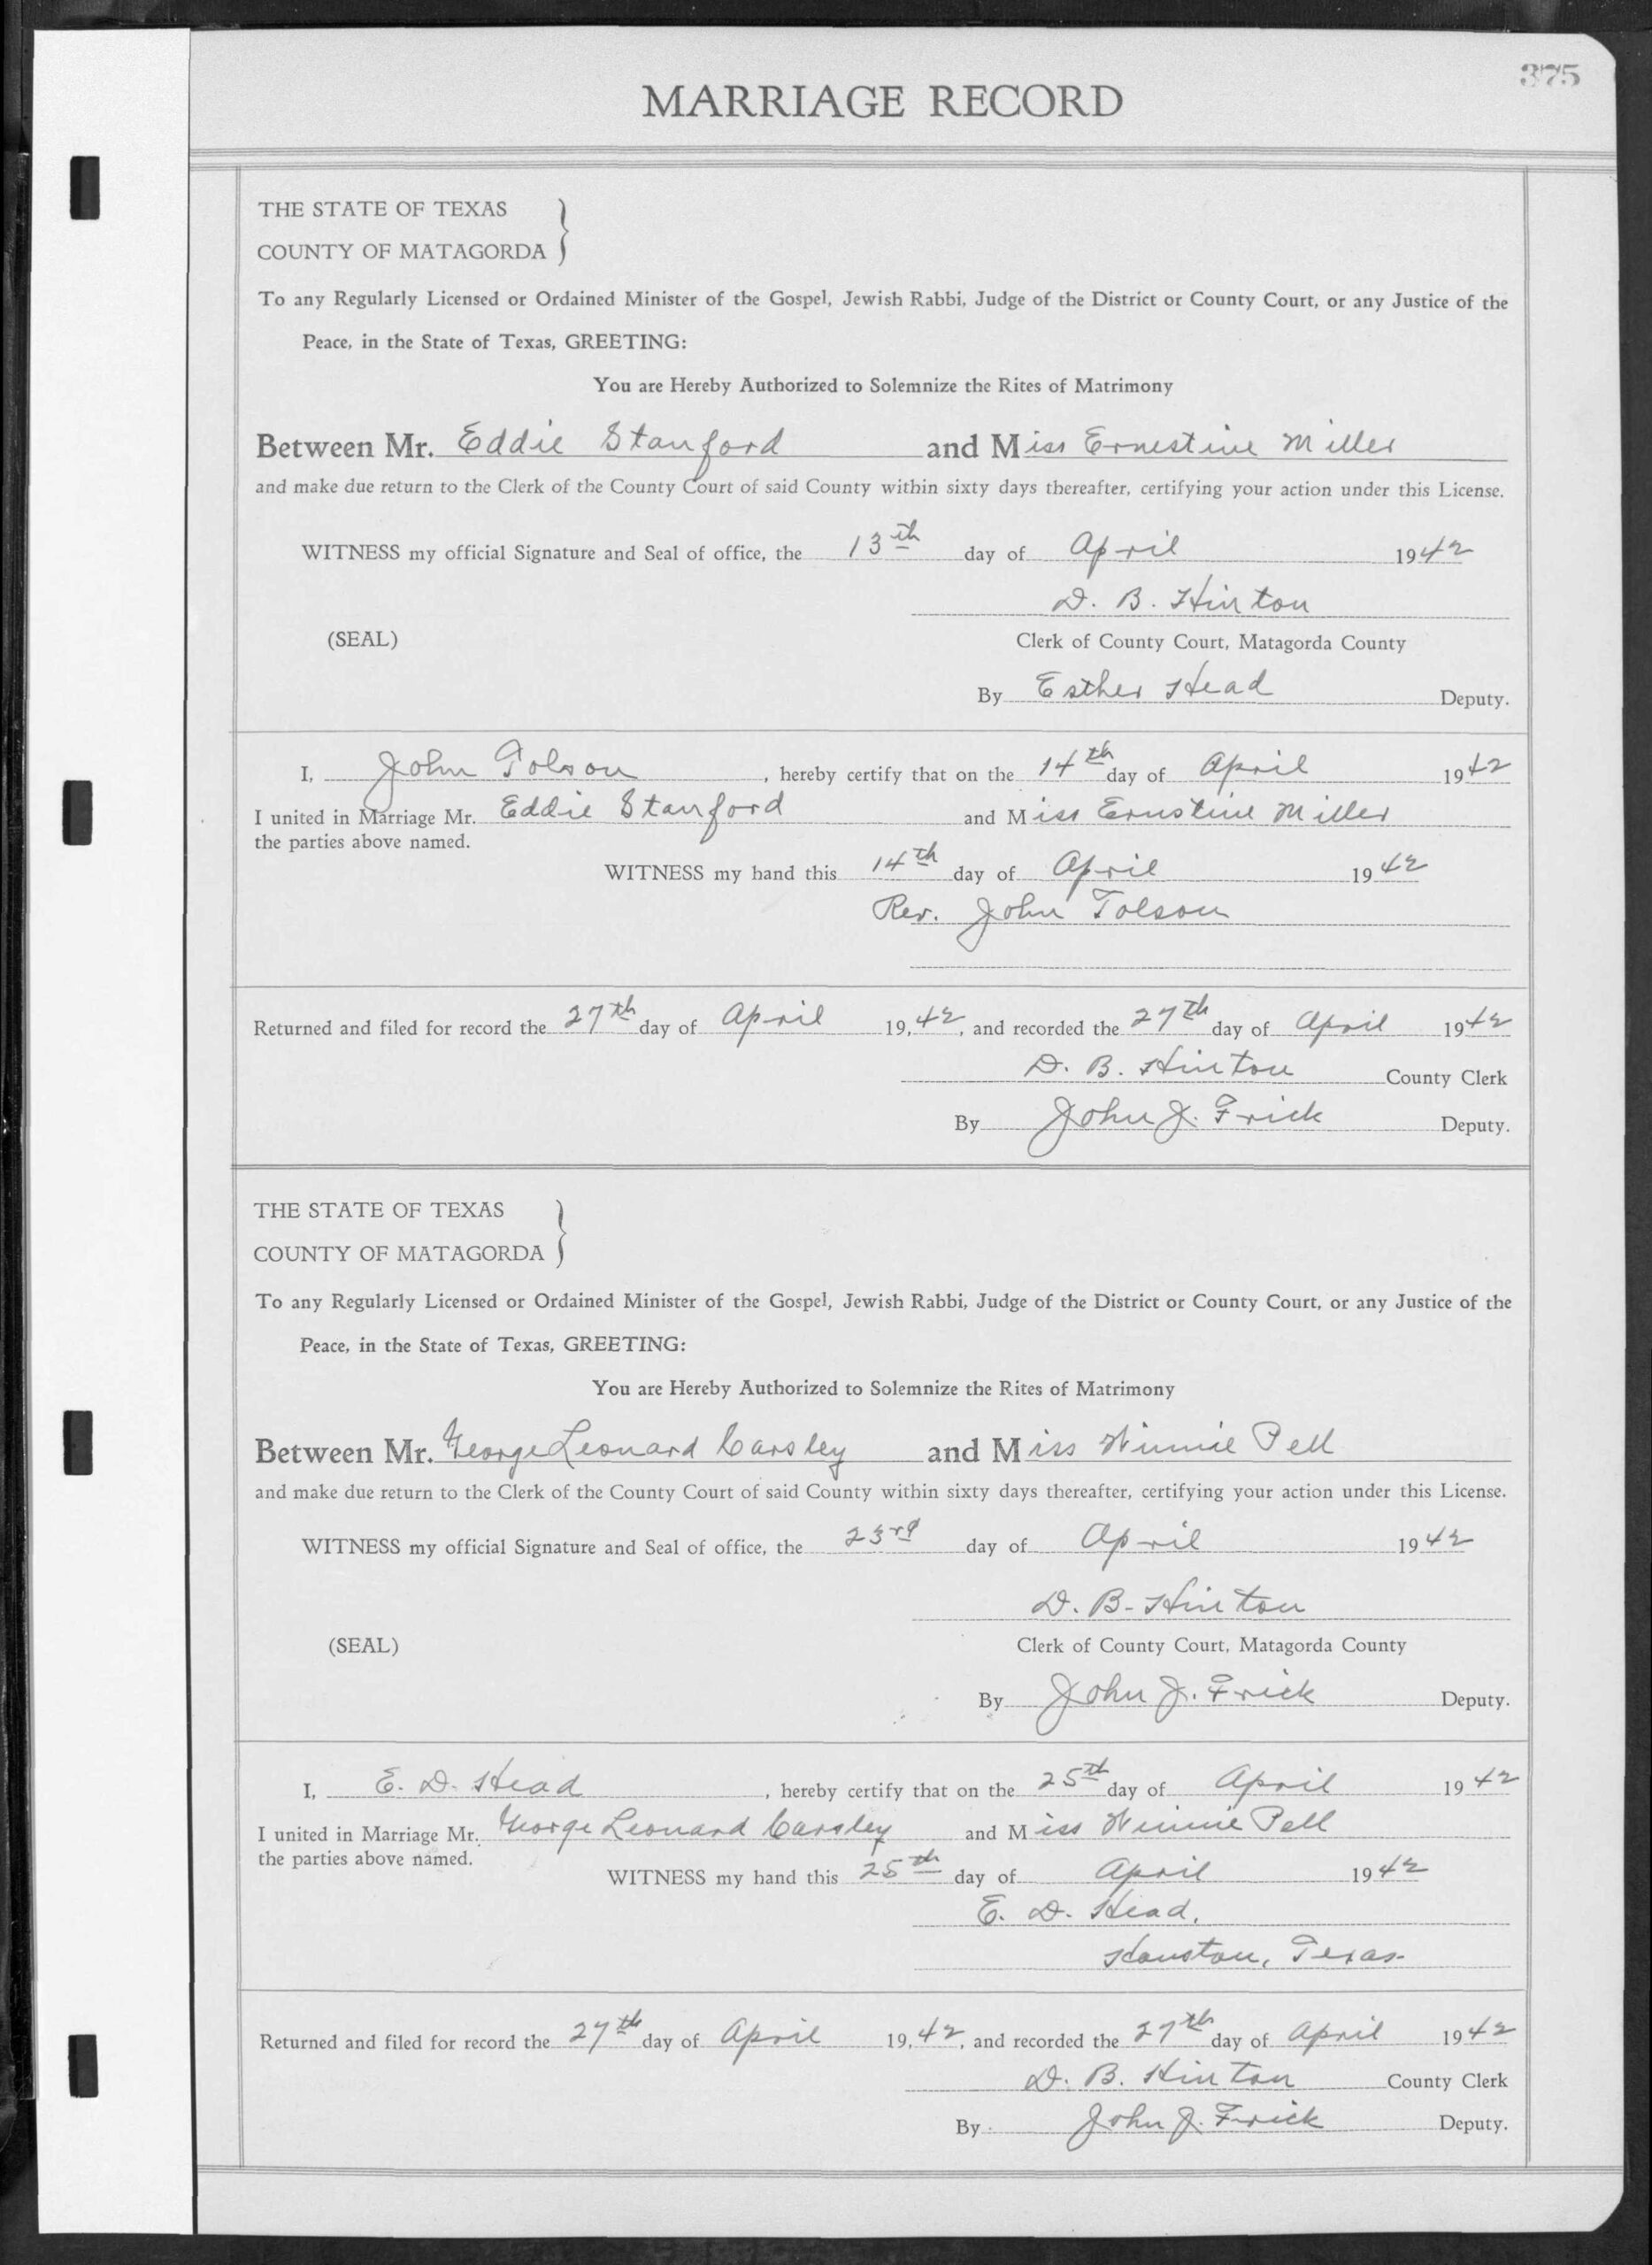 375
MARRIAGE RECORD
THE STATE OF TEXAS
COUNTY OF MATAGORDA
To any Regularly Licensed or Ordained Minister of the Gospel, Jewish Rabbi, Judge of the District or County Court, or any Justice of the
Peace, in the State of Texas, GREETING:
You are Hereby Authorized to Solemnize the Rites of Matrimony
Between Mr. Eddie Stanford and Miss Ernestine Miller
and make due return to the Clerk of the County Court of said County within sixty days thereafter, certifying your action under this License.
WITNESS my official Signature and Seal of office, the 13th day of April 1942
D. B. Hinton
(SEAL) Clerk of County Court, Matagorda County
By Esther Head Deputy.
I, John Tolson, hereby certify that on the 14th day of April 1942
I united in Marriage Mr. Eddie Stanford and Miss Ernstine Miller
the parties above named.
WITNESS my hand this 14th day of April 1942
Rev. John Tolson
Returned and filed for record the 27th day of April 19,42, and recorded the 27th day of April 1942
D. B. Hinton County Clerk
By John J. Frick Deputy.
THE STATE OF TEXAS
COUNTY OF MATAGORDA
To any Regularly Licensed or Ordained Minister of the Gospel, Jewish Rabbi, Judge of the District or County Court, or any Justice of the
Peace, in the State of Texas, GREETING:
You are Hereby Authorized to Solemnize the Rites of Matrimony
Between Mr. George Leonard Carsley and Miss Winnie Pell
and make due return to the Clerk of the County Court of said County within sixty days thereafter, certifying your action under this License.
WITNESS my official Signature and Seal of office, the 23rd day of April 1942
D. B. Hinton
(SEAL) Clerk of County Court, Matagorda County
By John J. Frick Deputy.
I, E. D. Head, hereby certify that on the 25th day of April 1942
I united in Marriage Mr. George Leonard Carsley and Miss Winnie Pell
the parties above named.
WITNESS my hand this 25th day of April 1942
E. D. Head,
Houston, Texas.
Returned and filed for record the 27th day of April 19,42, and recorded the 27th day of April 1942
D. B. Hinton County Clerk
By John J. Frick Deputy.